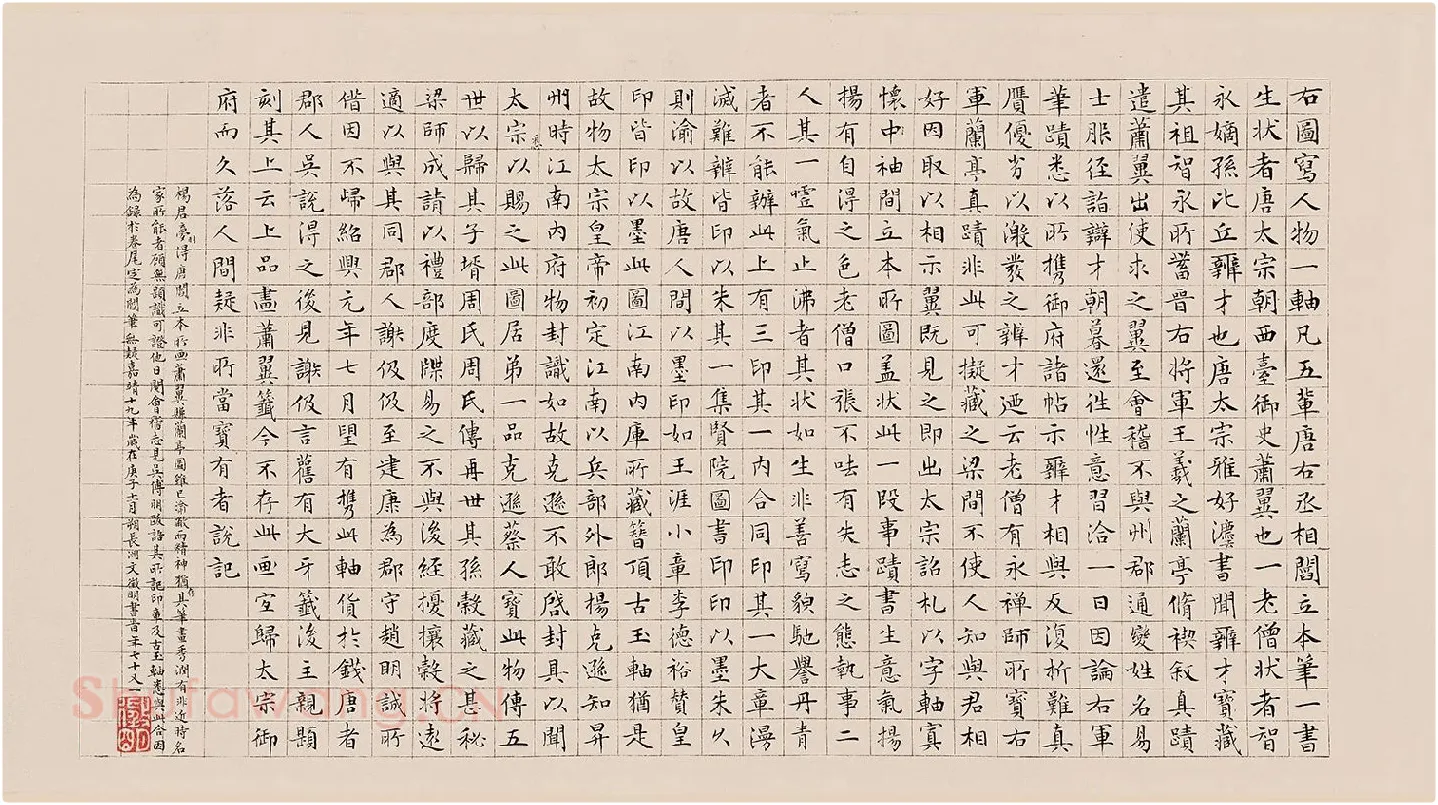 右圖寫人物一軸凡五輩唐右丞相閻立本筆一書
生狀者唐太宗朝西臺御史蕭翼也一老僧狀者智
永嫡孫比丘辨才也唐太宗雅好灋書聞辨才寶藏
其祖智永所蓄晉右將軍王羲之蘭亭脩禊叙真蹟
遣蕭翼出使求之翼至會稽不與州郡通變姓名易
士服徑詣辯才朝暮還徃性意習洽一日因論右軍
筆蹟悉以所攜御府諸帖示辨才相與反復析難真
贋優劣以激發之辨才迺云老僧有永禅師所寳右
軍蘭亭真蹟非此可擬藏之梁間不使人知與君相
好因取以相示翼既見之即出太宗詔札以字軸寘
懷中袖間立本所圖盖狀此一段事蹟書生意氣揚
揚有自得之色老僧口張不呿有失志之態執事二
人其一嘘氣止沸者其狀如生非善寫貌馳譽丹青
者不能辦此上有三印其一内合同印其一大章漫
滅難辨皆印以朱其一集賢院圖書印印以墨朱久
則渝以故唐人間以墨印如王涯小章李德裕贊皇
印皆印以墨此圖江南内庫所藏簮頂古玉軸猶是
故物太宗皇帝初定江南以兵部外郎揚克遜知昇
州時江南内府物封識如故克遜不敢啓封具以聞
太宗悉以賜之此圖居第一品克遜蔡人寶此物傳五
世以歸其子壻周氏周氏傳再世其孫榖藏之甚秘
梁師成請以禮部度牒易之不與後経擾攘榖將遠
適以與其同郡人謝伋伋至建康為郡守趙明誠所
借因不歸紹興元年七月望有携此軸貨於錢唐者
郡人吳說得之後見謝伋言舊有大牙籤後主親題
刻其上云上品畫蕭翼籤今不存此画宜歸太宗御
府而久落人間疑非所當寶有者說記
楊君夢得唐閻立本所画蕭翼賺蘭亭圖雖已渝敝而精神猶具筆畫秀潤有非近時名
家所能者顧無題識可證他日閱會稽志見吳傅朋跋語具所記印章及古玉軸悉與此合因
為録於卷尾定為閻筆無疑嘉靖十九年歲在庚子十二月朔長洲文徵明書昔年七十又一
Shufawang.CN